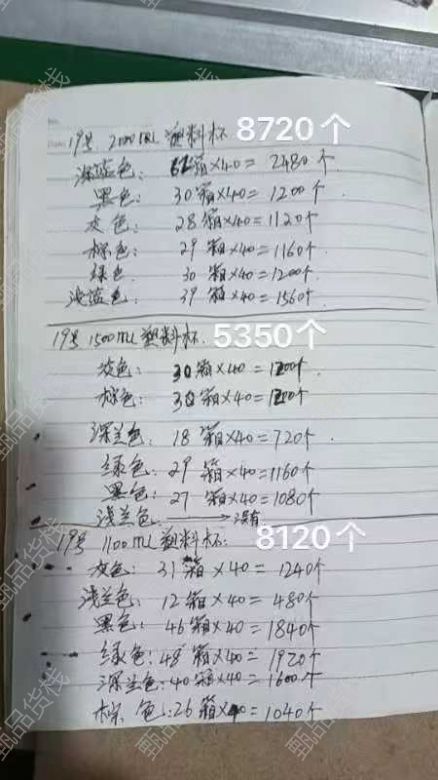 19号 2000ML 塑料杯 8720个
深蓝色: 62箱×40=2480个
黑色: 30箱×40=1200个
灰色: 28箱×40=1120个
棕色: 29箱×40=1160个
绿色 30箱×40=1200个
浅蓝色: 39箱×40=1560个
19号 1500ML 塑料杯. 5350个
灰色: 30箱×40=1200个
棕色: 30箱×40=1200个
深兰色: 18箱×40=720个
绿色: 29箱×40=1160个
黑色: 27箱×40=1080个
浅兰色: →没有
19号 1100ML 塑料杯: 8120个
灰色: 31箱×40=1240个
浅兰色: 12箱×40=480个
黑色: 46箱×40=1840个
绿色: 48箱×40=1920个
深兰色: 40箱×40=1600个
棕色: 26箱×40=1040个
甄品货栈